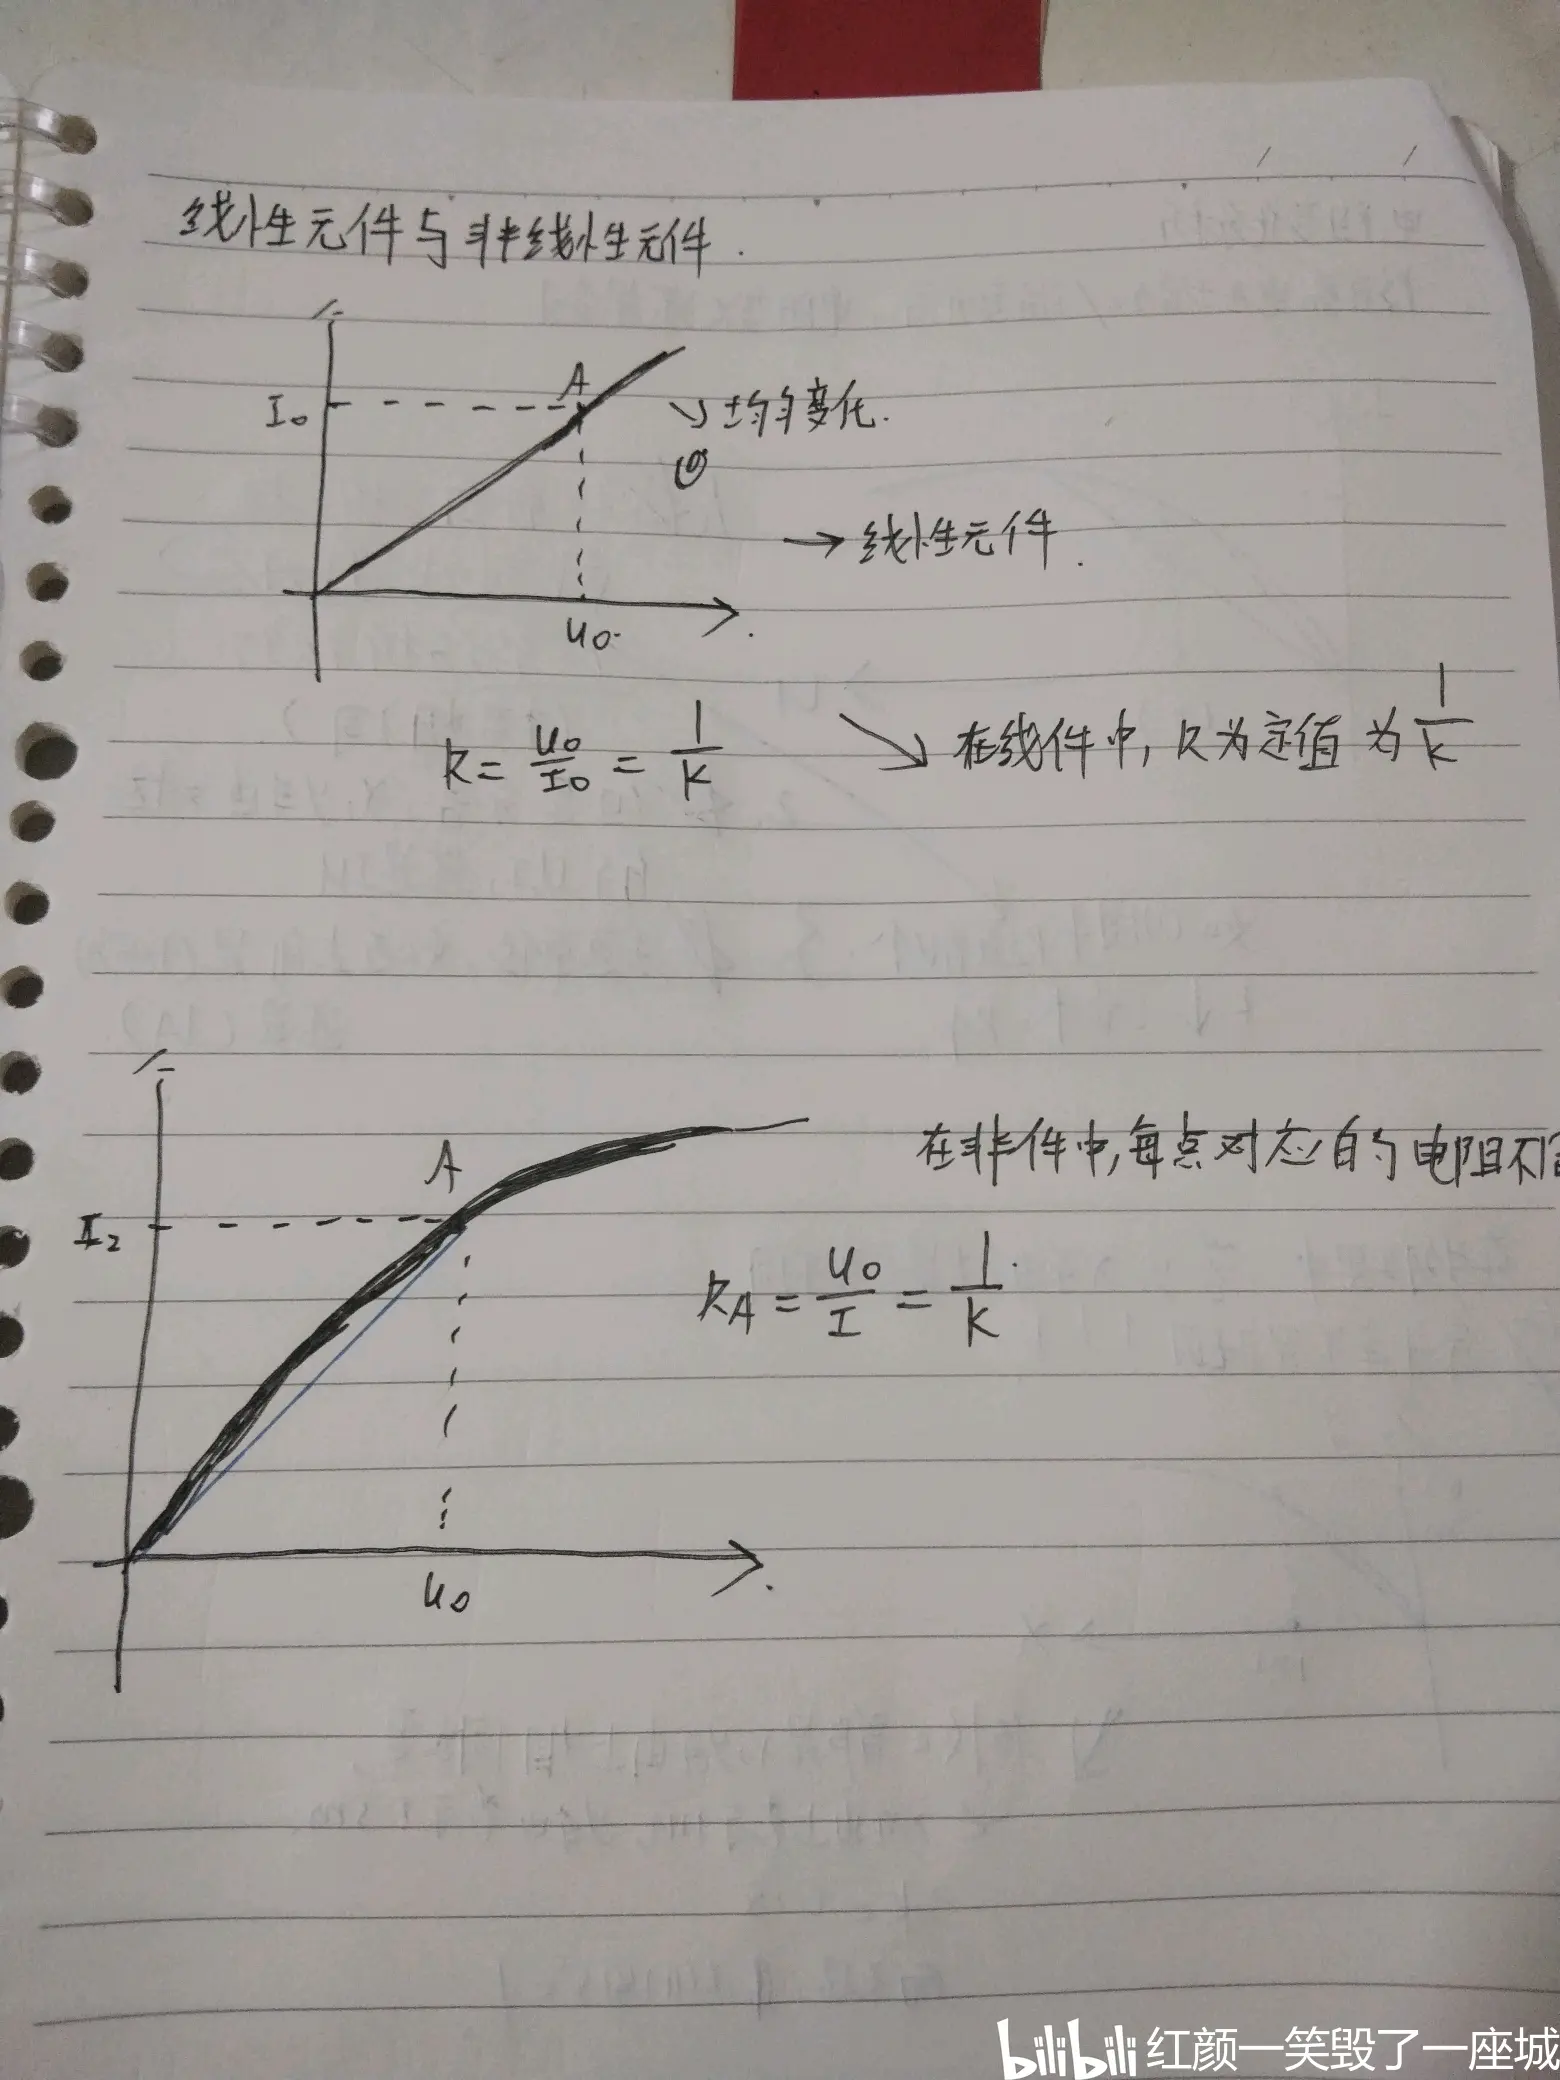 线性元件与非线性元件.
A
I₀
↘均匀变化.
→线性元件.
u₀.
R = u₀/I₀ = 1/k
↘在线件中, R为定值为 1/k
A
在非件中,每点对应的电阻不
I₂
R_A = u₀/I = 1/k
u₀
bilibili 红颜一笑毁了一座城